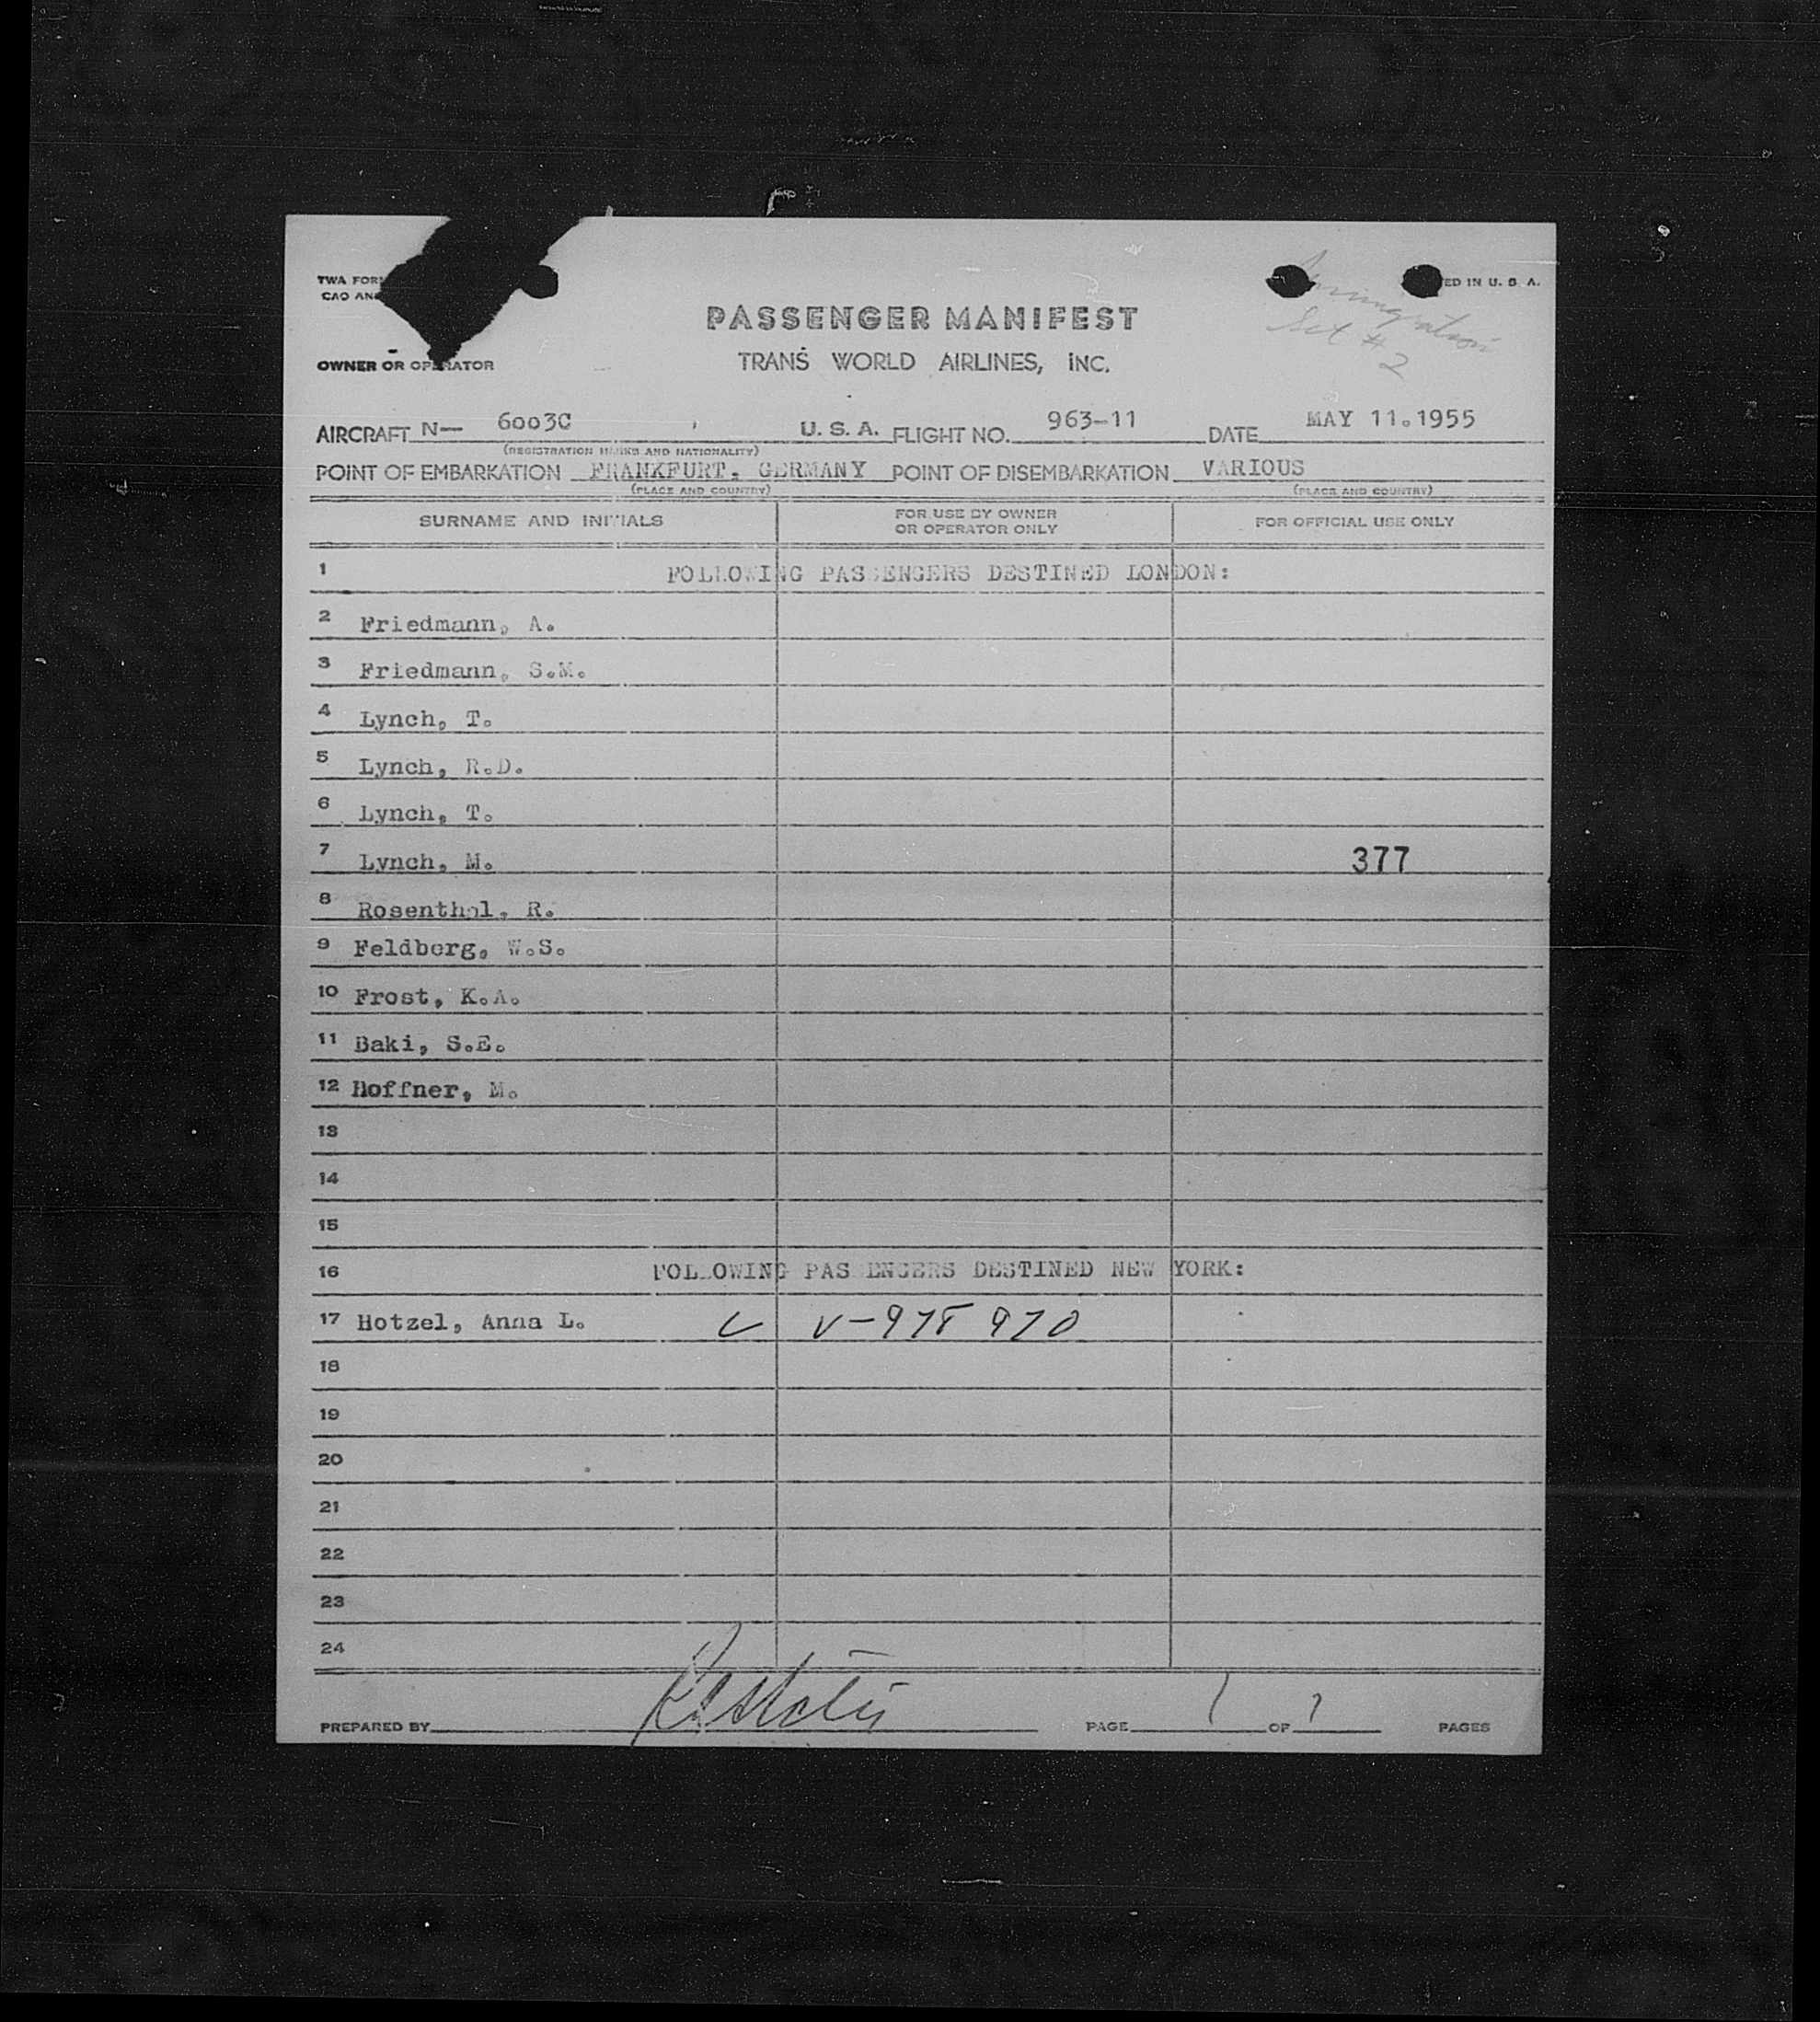 TWA FOR
ED IN U. S. A.
CAO AN
Immigration
Set # 2
PASSENGER MANIFEST
OWNER OR OPERATOR
TRANS WORLD AIRLINES, INC.
AIRCRAFT N— 6003C U. S. A. FLIGHT NO. 963-11 DATE MAY 11.1955
(REGISTRATION MARKS AND NATIONALITY)
POINT OF EMBARKATION FRANKFURT, GERMANY POINT OF DISEMBARKATION VARIOUS
(PLACE AND COUNTRY) (PLACE AND COUNTRY)
SURNAME AND INITIALS FOR USE BY OWNER OR OPERATOR ONLY FOR OFFICIAL USE ONLY
1 FOLLOWING PASSENGERS DESTINED LONDON:
2 Friedmann, A.
3 Friedmann, S.M.
4 Lynch, T.
5 Lynch, R.D.
6 Lynch, T.
7 Lynch, M. 377
8 Rosenthal, R.
9 Feldberg, W.S.
10 Frost, K.A.
11 Baki, S.E.
12 Hoffner, M.
13
14
15
16 FOLLOWING PASSENGERS DESTINED NEW YORK:
17 Hotzel, Anna L. V-978 970
18
19
20
21
22
23
24
PREPARED BY PAGE 1 OF 1 PAGES